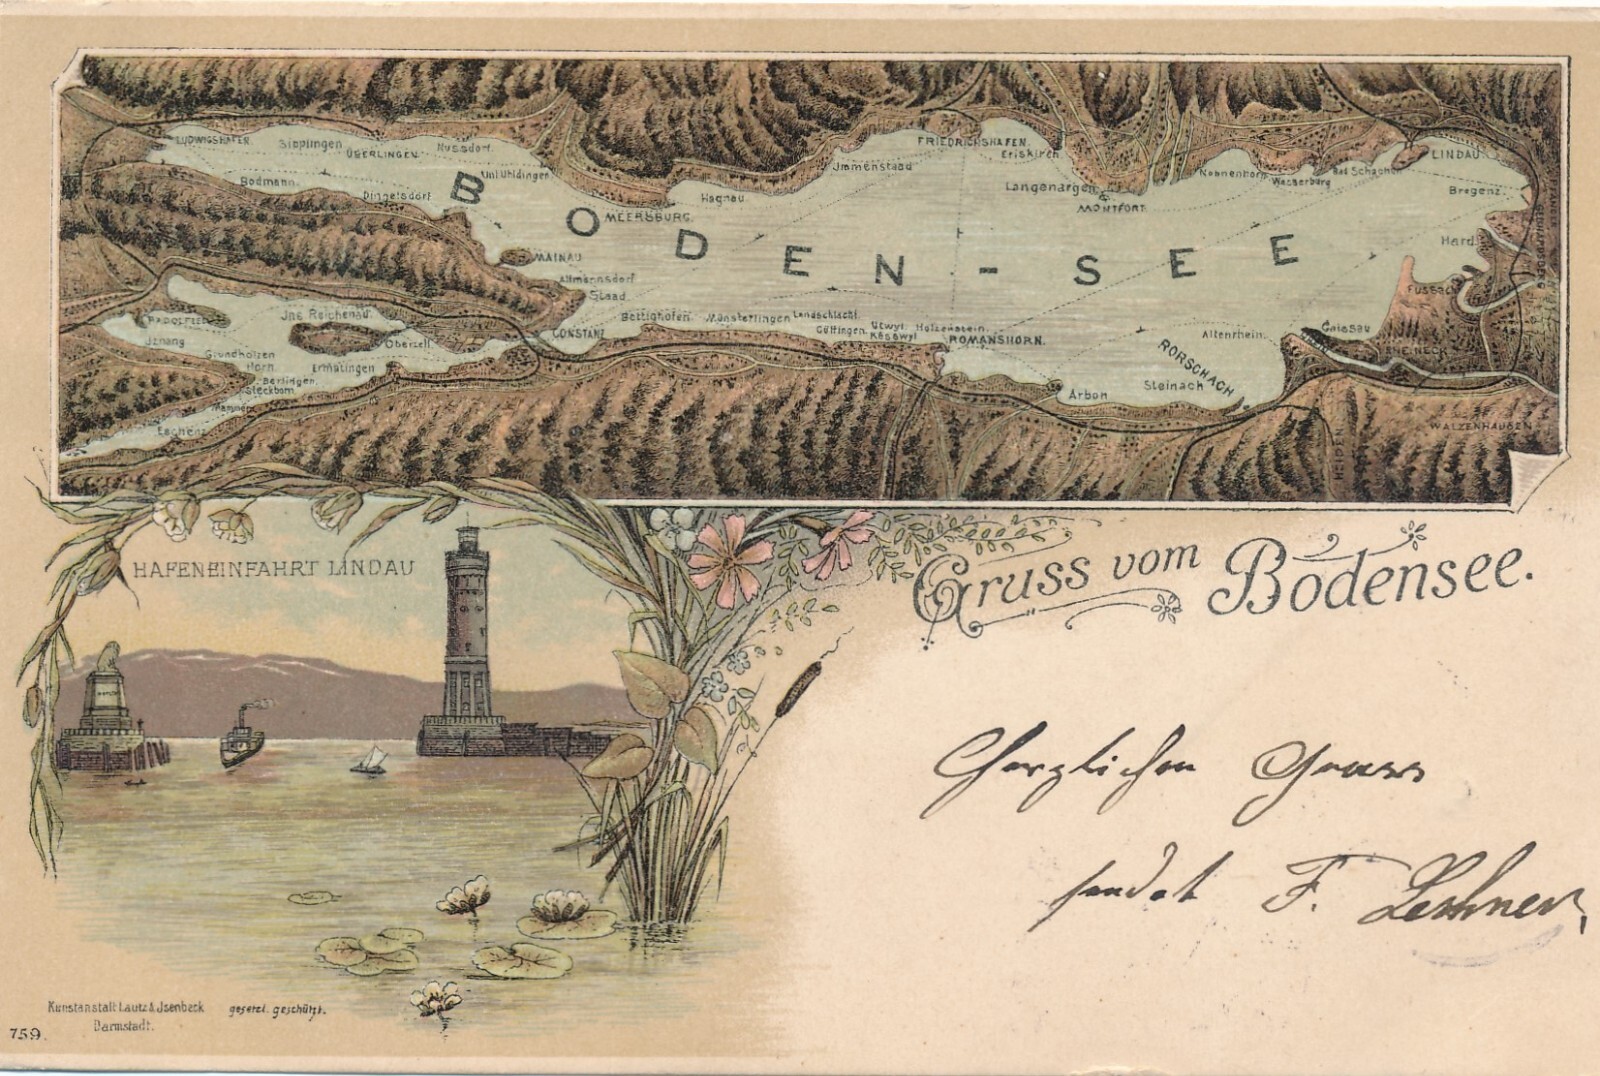 LUDWIGSHAFEN
Sipplingen
ÜBERLINGEN
Nussdorf
Unt Uhldingen
Bodmann
Dingelsdorf
BODEN-SEE
MEERSBURG.
Hagnau
Immenstaad
FRIEDRICHSHAFEN
Eriskirch
Langenargen
MONTFORT
Nonnenhorn
Wasserburg
Bad Schachen
LINDAU
Bregenz
Hard
FUSSACH
MAINAU
Allmannsdorf
Staad
CONSTANZ
Bottighofen
Münsterlingen
Landschlacht
Güttingen
Utwyl
Kesswyl
Holzenstein
ROMANSHORN.
Altenrhein
Gaissau
RHEINECK
RORSCHACH
Steinach
Arbon
WALZENHAUSEN
HEIDEN
RADOLFZELL
Iznang
Ins Reichenau
Oberzell
Ermatingen
Grundholzen
Horn
Berlingen
Steckborn
Mammern
Eschenz
HAFENEINFAHRT LINDAU
Gruss vom Bodensee.
Herzlichen Gruss
sendet F. Lechner
Kunstanstalt Lautz & Jsenbeck
Darmstadt.
gesetzl. geschützt.
759.